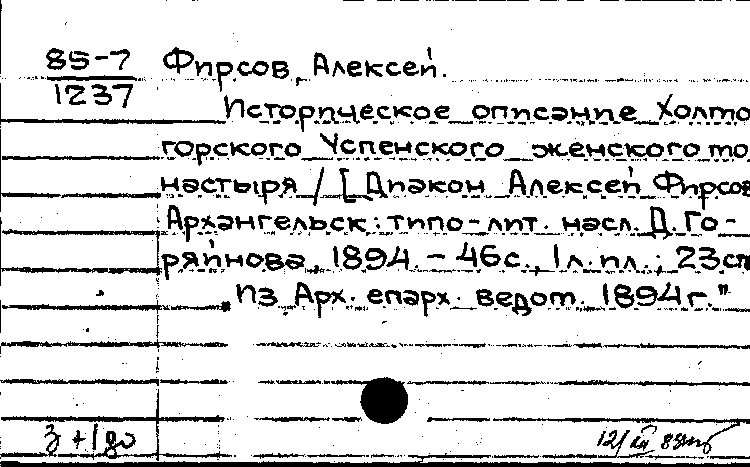 85-7
1237
Фирсов, Алексей.
Историческое описание Холмо
горского Успенского женского мо
настыря / [Диакон Алексей Фирсов
Архангельск: типо-лит. насл. Д. Го-
ряйнова, 1894. – 46с., 1л. ил.; 23см
„Из Арх. епарх. ведом. 1894г."
3+1 до